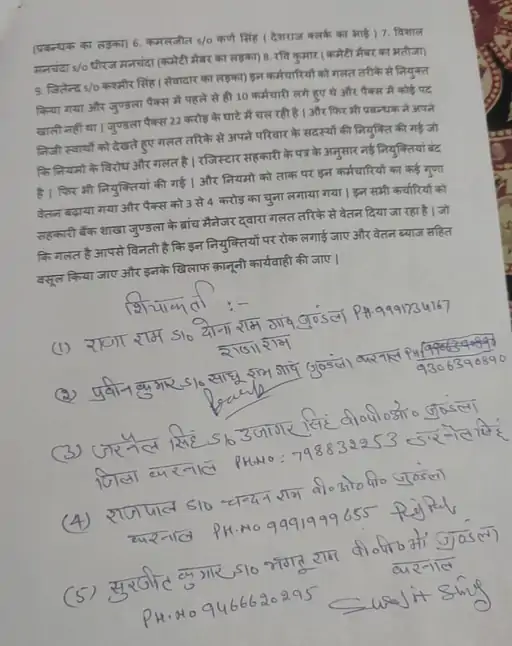 (प्रबन्धक का लड़का) 6. कमलजीत s/o कर्ण सिंह ( देशराज क्लर्क का भाई ) 7. विशाल
मनचंदा s/o धीरज मनचंदा (कमेटी मेंबर का लड़का) 8. रवि कुमार ( कमेटी मेंबर का भतीजा)
9. जितेन्द्र s/o कश्मीर सिंह ( सेवादार का लड़का) इन कर्मचारियों को गलत तरीके से नियुक्त
किया गया और जुण्डला पैक्स में पहले से ही 10 कर्मचारी लगे हुए थे और पैक्स में कोई पद
खाली नहीं था | जुण्डला पैक्स 22 करोड़ के घाटे में चल रही है | और फिर भी प्रबन्धक ने अपने
निजी स्वार्थों को देखते हुए गलत तरिके से अपने परिवार के सदस्यों की नियुक्ति की गई जो
कि नियमो के विरोध और गलत है | रजिस्टार सहकारी के पत्र के अनुसार नई नियुक्तियां बंद
है | फिर भी नियुक्तियां की गई | और नियमो को ताक पर इन कर्मचारियों का कई गुणा
वेतन बढ़ाया गया और पैक्स को 3 से 4 करोड़ का चुना लगाया गया | इन सभी कर्चारियों को
सहकारी बैंक शाखा जुण्डला के ब्रांच मैनेजर द्वारा गलत तरिके से वेतन दिया जा रहा है | जो
कि गलत है आपसे विनती है कि इन नियुक्तियों पर रोक लगाई जाए और वेतन ब्याज सहित
वसूल किया जाए और इनके खिलाफ क़ानूनी कार्यवाही की जाए |
शिकायकर्ता :-
(1) राजा राम S/o राम गांव जुण्डला PH.9991734167
राजाराम
(2) प्रवीन कुमार S/o साधू राम गांव जुण्डला करनाल PH
9306390890
(3) जरनैल सिंह S/o उजागर सिंह वी०पी०ओ० जुण्डला
जिला करनाल PH.NO: 798832253 जरनैल सिंह
(4) राजपाल S/o चन्दन राम वी०ओ०पी० जुण्डला
करनाल PH.NO 9991999655
(5) सुरजीत कुमार S/o भगतू राम वी०पी०ओ जुण्डला
करनाल
PH.NO 9466620295 Surjit Singh